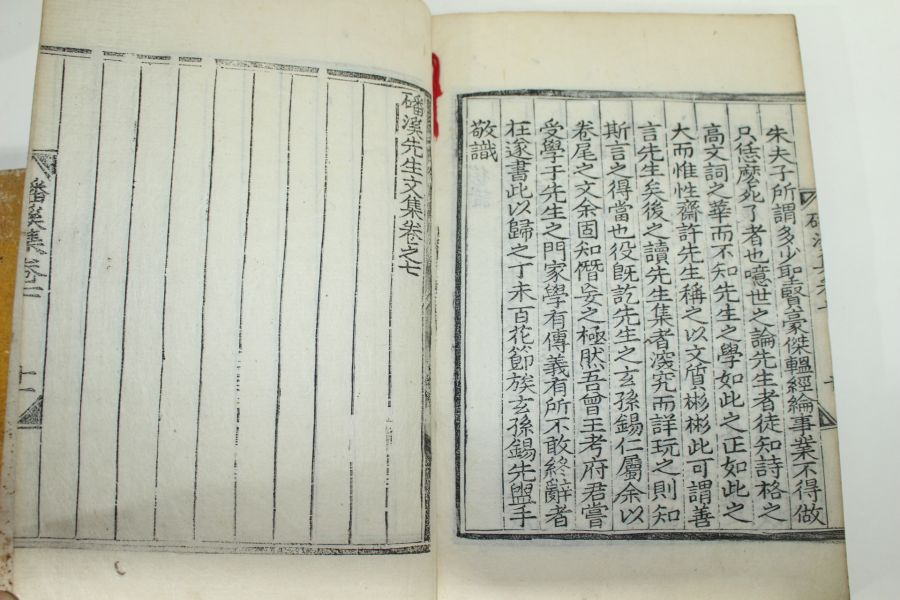 朱夫子所謂多少聖賢豪傑韞經綸事業不得做
只恁麽死了者也噫世之論先生者徒知詩格之
高文詞之華而不知先生之學如此之正如此之
大而惟性齋許先生稱之以文質彬彬此可謂善
言先生矣後之讀先生集者深究而詳玩之則知
斯言之得當也役旣訖先生之玄孫錫仁屬余以
卷尾之文余固知僭妄之極然吾曾王考府君嘗
受學于先生之門家學有傳義有所不敢終辭者
在遂書此以歸之丁未百花節族玄孫錫先盥手
敬識
磻溪先生文集卷之七
磻溪集卷
十一